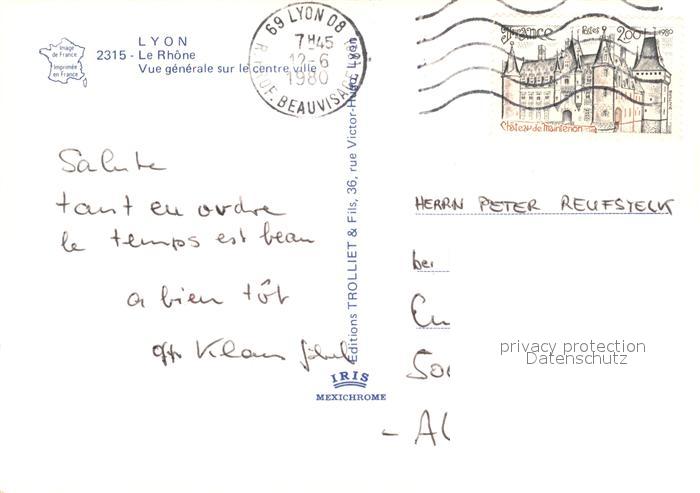 Image
de France
Imprimée
en France
LYON
2315 - Le Rhône
Vue générale sur le centre ville
69 LYON 08
7H45
12-6
1980
BEAUVISAGE
France
Postes
2,00
1980
Château de Maintenon
Editions TROLLIET & Fils, 36, rue Victor-Hugo, Lyon
Salute
tout en ordre
le temps est beau
a bien tôt
Klaus
HERRN PETER
bei
privacy protection
Datenschutz
IRIS
MEXICHROME